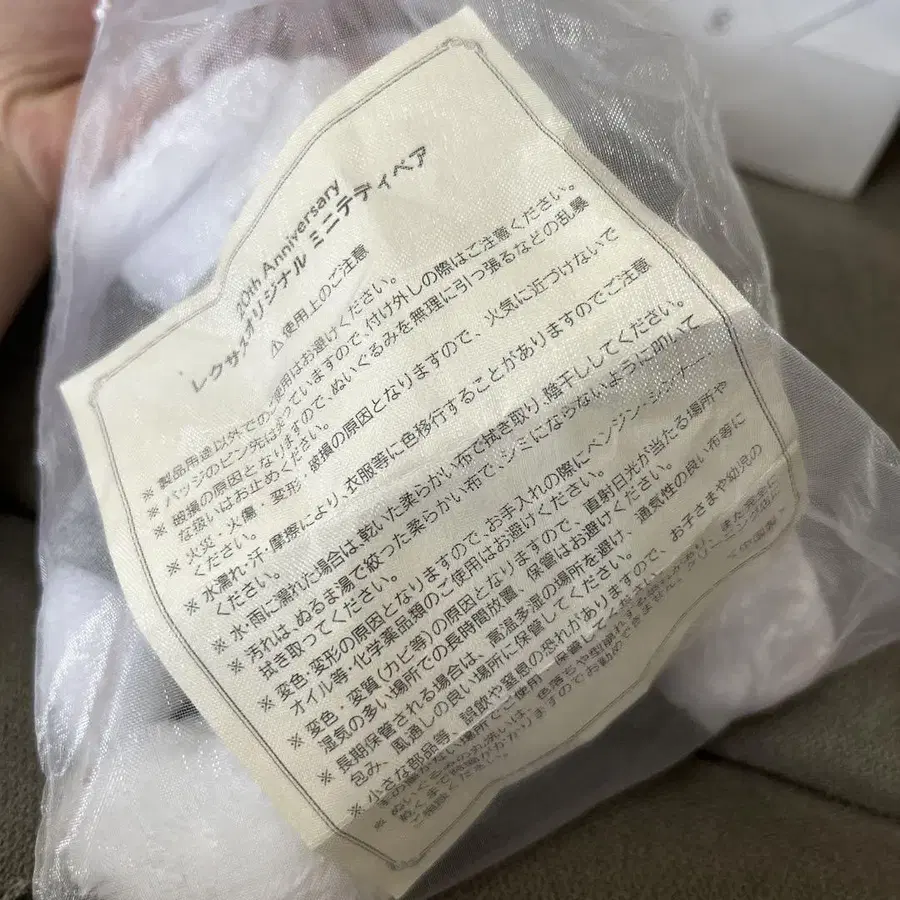 20th Anniversary
レクサスオリジナル ミニテディベア
⚠ 使用上のご注意
※ 製品用途以外でのご使用はお避けください。
※ バッジのピン先は尖っていますので、付け外しの際はご注意ください。
※ 破損の原因となりますので、ぬいぐるみを無理に引っ張るなどの乱暴
な扱いはお止めください。
※ 火災・火傷・変形・破損の原因となりますので、火気に近づけないで
ください。
※ 水濡れ・汗・摩擦により、衣服等に色移行することがありますのでご注意
ください。
※ 水・雨に濡れた場合は、乾いた柔らかい布で拭き取り、陰干ししてください。
※ 汚れは、ぬるま湯で絞った柔らかい布で、シミにならないように叩いて
拭き取ってください。
※ 変色・変形の原因となりますので、お手入れの際にベンジン・シンナー・
オイル等・化学薬品類のご使用はお避けください。
※ 変色・変質(カビ等)の原因となりますので、直射日光が当たる場所や
湿気の多い場所での長時間放置、保管はお避けください。
※ 長期保管される場合は、高温多湿の場所を避け、通気性の良い布等に
包み、風通しの良い場所に保管してください。
※ 小さな部品等、誤飲や窒息の恐れがありますので、お子さまや幼児の
手の届かない場所でご使用・保管してください。
※ ぬいぐるみの丸洗いは、色落ちや型崩れする
乾くまで時間がかかりますのでお勧めできません。
ご遠慮ください。
<中国製>